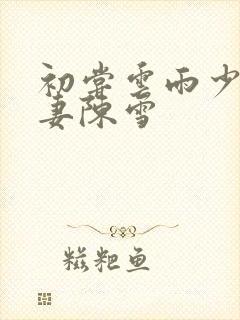 初尝雲雨少
妻陳雪
糍粑鱼